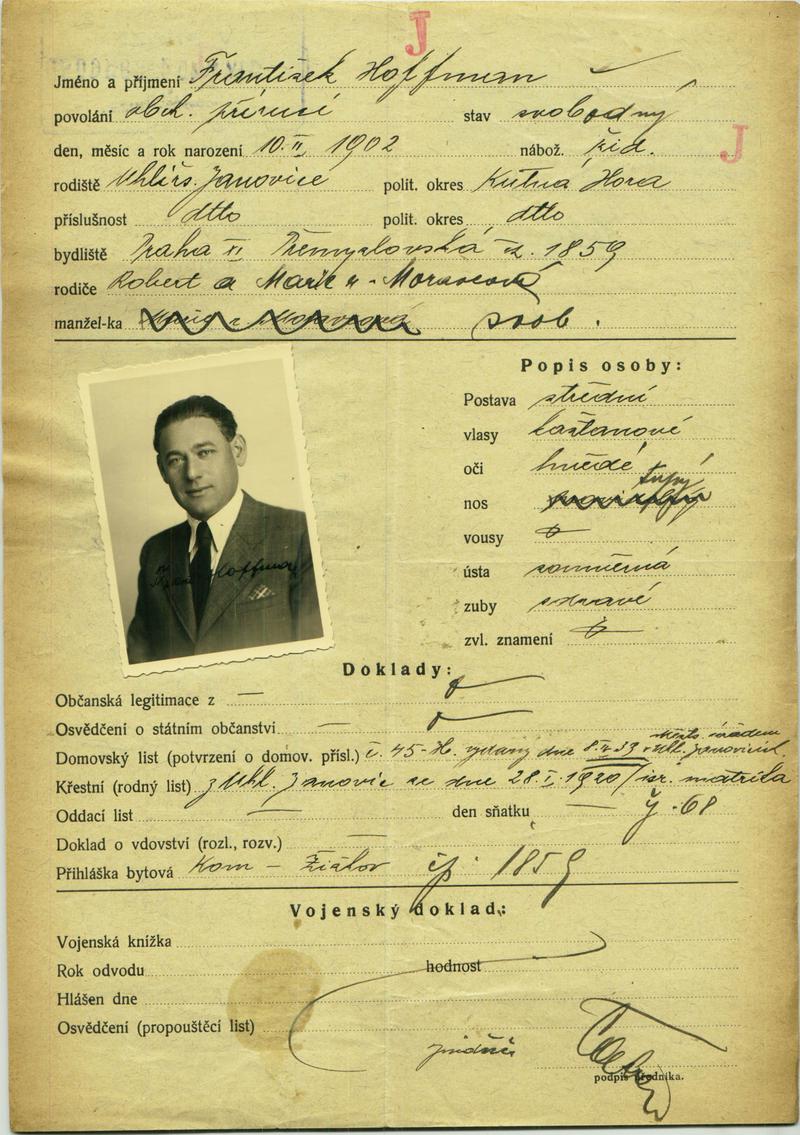 J
Jméno a příjmení František Hoffman
povolání obch. příručí stav svobodný
den, měsíc a rok narození 10. II. 1902 nábož. žid.
J
rodiště Uhlířs. Janovice polit. okres Kutná Hora
příslušnost dtto polit. okres dtto
bydliště Praha XI Přemyslovská č. 1859
rodiče Robert a Marie r. Moravcová
manžel-ka svob.
Popis osoby:
Postava střední
vlasy kaštanové
oči hnědé
nos tupý
vousy
ústa souměrná
zuby zdravé
zvl. znamení
Hoffman
Doklady:
Občanská legitimace z —
Osvědčení o státním občanství —
Domovský list (potvrzení o domov. přísl.) č. 45-H. vydaný dne 8.IV.39 v Uhl. Janovicích
Křestní (rodný list) z Uhl. Janovic ze dne 28.I.1920/isr. matrika
Oddací list — den sňatku — 68
Doklad o vdovství (rozl., rozv.) —
Přihláška bytová Kom – Žižkov čp. 1859
Vojenský doklad:
Vojenská knížka
Rok odvodu hodnost
Hlášen dne
Osvědčení (propouštěcí list)
podpis úředníka.